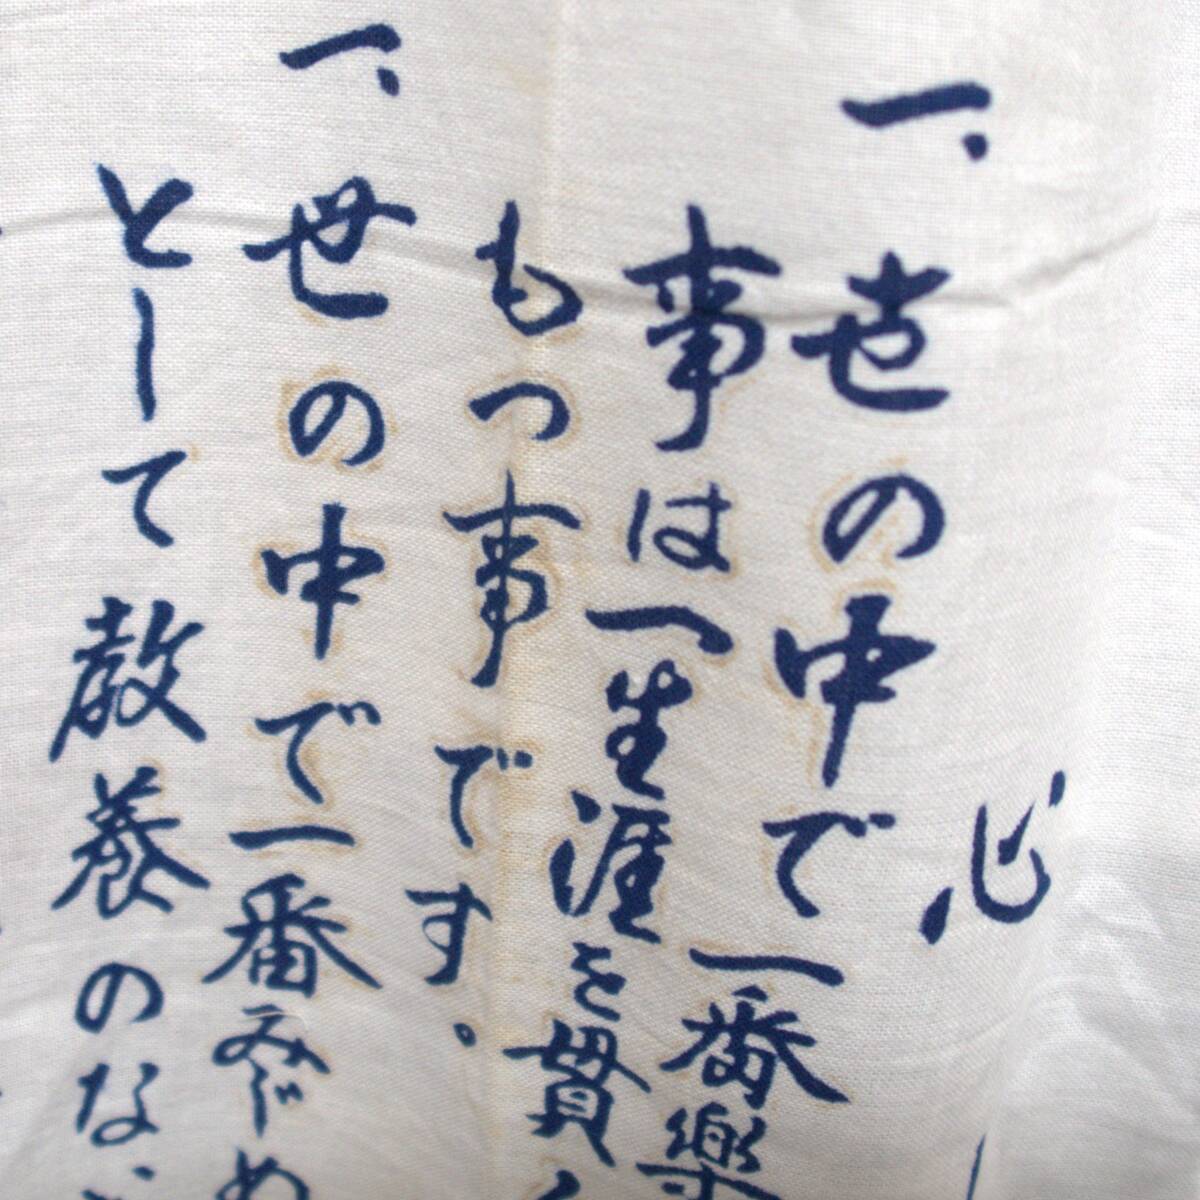 心
一、世の中で一番楽
事は一生涯を貫く
もつ事です。
一、世の中で一番みじめ
として教養のな